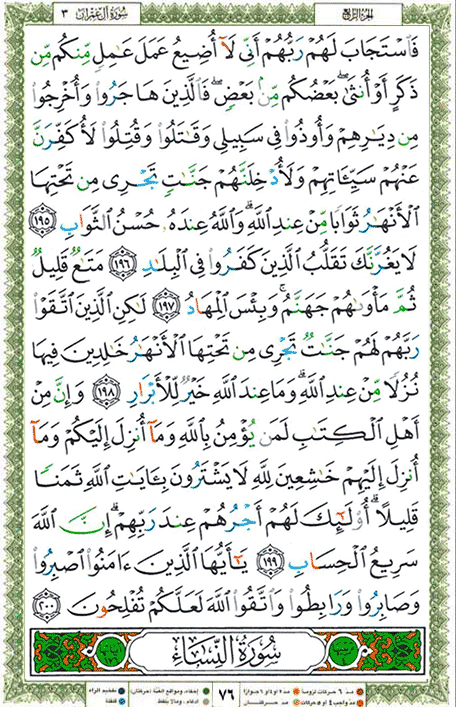 سُورَةُ آلِ عِمْرَان ٣
الجُزْءُ الرَّابِع
فَٱسْتَجَابَ لَهُمْ رَبُّهُمْ أَنِّى لَآ أُضِيعُ عَمَلَ عَٰمِلٍ مِّنكُم مِّن
ذَكَرٍ أَوْ أُنثَىٰ ۖ بَعْضُكُم مِّنۢ بَعْضٍ ۖ فَٱلَّذِينَ هَاجَرُوا۟ وَأُخْرِجُوا۟
مِن دِيَٰرِهِمْ وَأُوذُوا۟ فِى سَبِيلِى وَقَٰتَلُوا۟ وَقُتِلُوا۟ لَأُكَفِّرَنَّ
عَنْهُمْ سَيِّـَٔاتِهِمْ وَلَأُدْخِلَنَّهُمْ جَنَّٰتٍ تَجْرِى مِن تَحْتِهَا
ٱلْأَنْهَٰرُ ثَوَابًا مِّنْ عِندِ ٱللَّهِ ۗ وَٱللَّهُ عِندَهُۥ حُسْنُ ٱلثَّوَابِ ١٩٥
لَا يَغُرَّنَّكَ تَقَلُّبُ ٱلَّذِينَ كَفَرُوا۟ فِى ٱلْبِلَٰدِ ١٩٦ مَتَٰعٌ قَلِيلٌ
ثُمَّ مَأْوَىٰهُمْ جَهَنَّمُ ۚ وَبِئْسَ ٱلْمِهَادُ ١٩٧ لَٰكِنِ ٱلَّذِينَ ٱتَّقَوْا۟
رَبَّهُمْ لَهُمْ جَنَّٰتٌ تَجْرِى مِن تَحْتِهَا ٱلْأَنْهَٰرُ خَٰلِدِينَ فِيهَا
نُزُلًا مِّنْ عِندِ ٱللَّهِ ۗ وَمَا عِندَ ٱللَّهِ خَيْرٌ لِّلْأَبْرَارِ ١٩٨ وَإِنَّ مِنْ
أَهْلِ ٱلْكِتَٰبِ لَمَن يُؤْمِنُ بِٱللَّهِ وَمَآ أُنزِلَ إِلَيْكُمْ وَمَآ
أُنزِلَ إِلَيْهِمْ خَٰشِعِينَ لِلَّهِ لَا يَشْتَرُونَ بِـَٔايَٰتِ ٱللَّهِ ثَمَنًا
قَلِيلًا ۗ أُو۟لَٰٓئِكَ لَهُمْ أَجْرُهُمْ عِندَ رَبِّهِمْ ۗ إِنَّ ٱللَّهَ
سَرِيعُ ٱلْحِسَابِ ١٩٩ يَٰٓأَيُّهَا ٱلَّذِينَ ءَامَنُوا۟ ٱصْبِرُوا۟
وَصَابِرُوا۟ وَرَابِطُوا۟ وَٱتَّقُوا۟ ٱللَّهَ لَعَلَّكُمْ تُفْلِحُونَ ٢٠٠
سُورَةُ النِّسَاءِ
٧٦